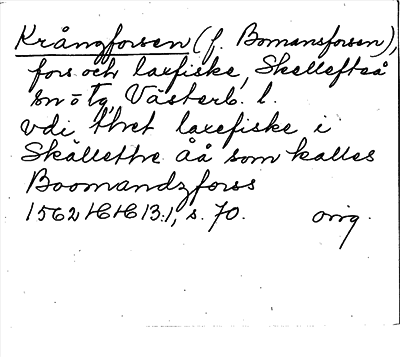 Krångforsen (f. Bomansforsen),
fors och laxfiske, Skellefteå
sn o tg, Västerb. l.
vdi thet laxefiske i
Skällethe Åå som kalles
Boomandzforss
1562 HH 13:1, s. 70. orig.